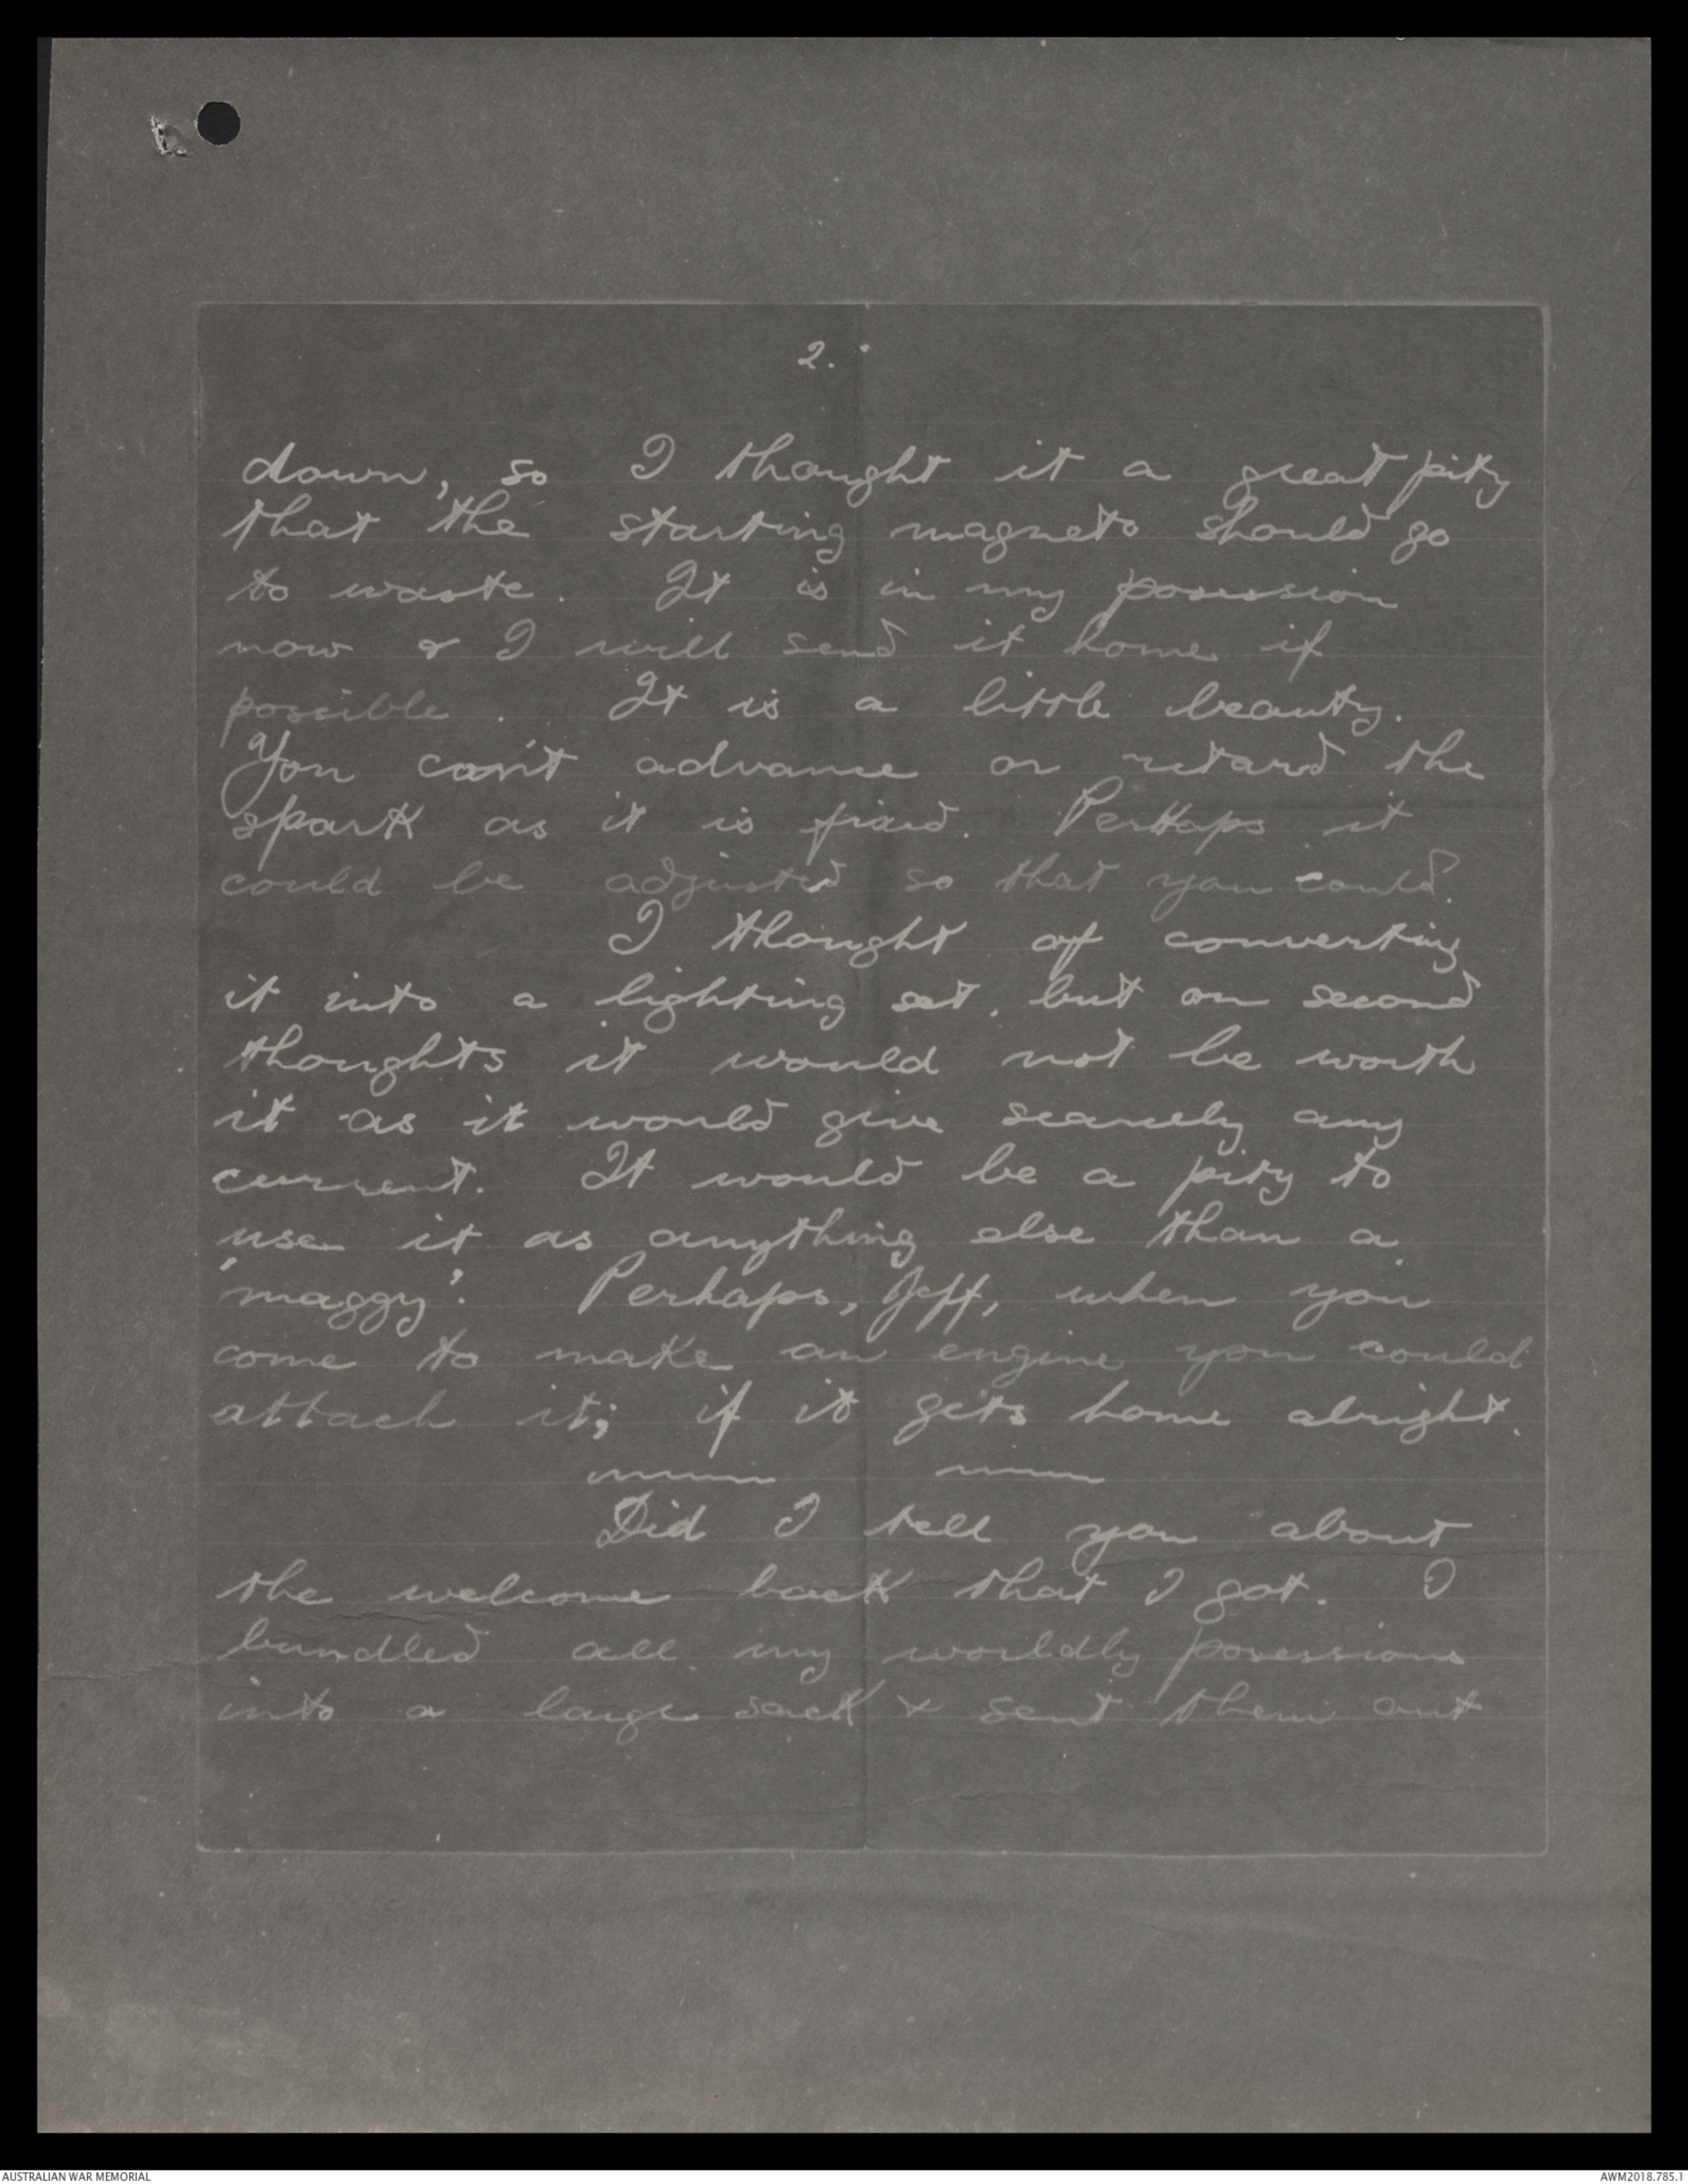 2.
down, so I thought it a great pity
that the starting magneto should go
to waste. It is in my possession
now & I will send it home if
possible. It is a little beauty.
You can't advance or retard the
spark as it is fixed. Perhaps it
could be adjusted so that you could.
I thought of converting
it into a lighting set, but on second
thoughts it would not be worth
it as it would give scarcely any
current. It would be a pity to
use it as anything else than a
'maggy'. Perhaps, Jeff, when you
come to make an engine you could
attach it; if it gets home alright.
Did I tell you about
the welcome back that I got. I
bundled all my worldly possessions
into a large sack & sent them out
AUSTRALIAN WAR MEMORIAL
AWM2018.785.1